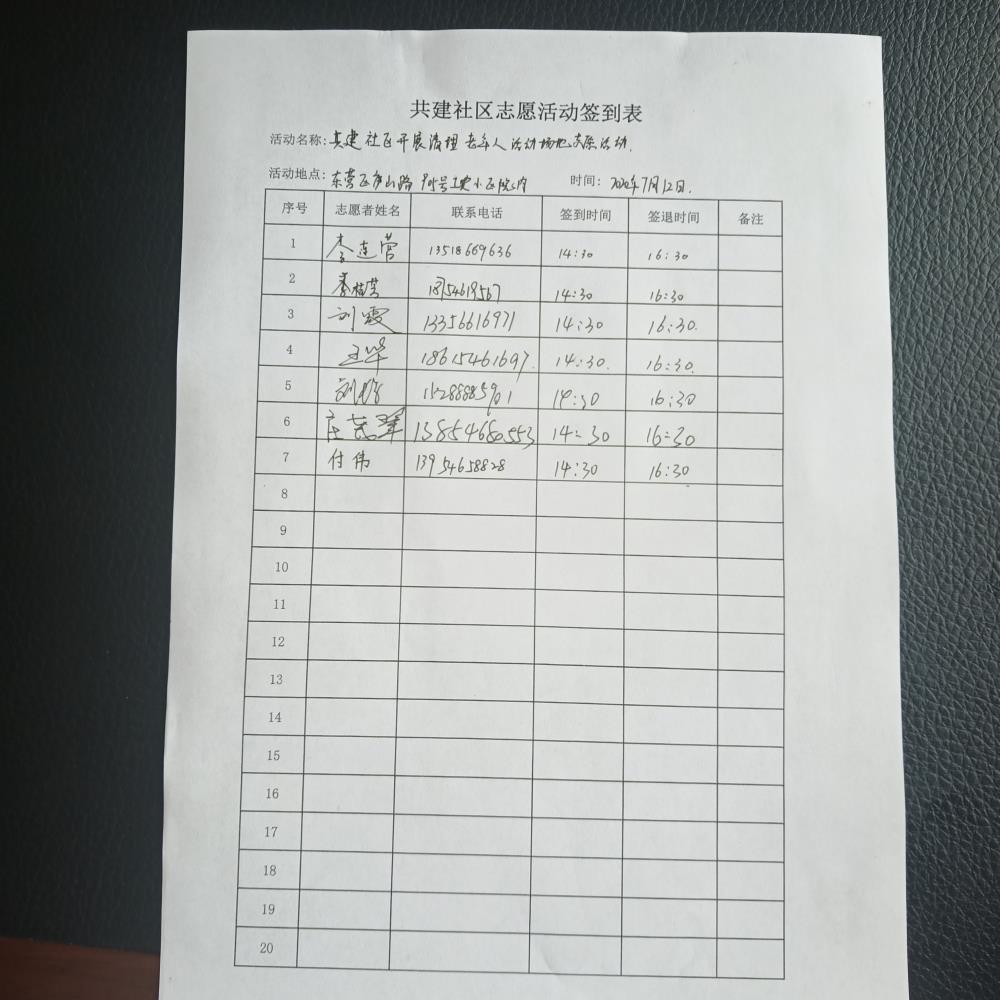 共建社区志愿活动签到表
活动名称：共建社区开展清理老年人活动场地志愿活动.
活动地点：东营区庐山路 号工委小区院内 时间：2020年7月12日.
序号 志愿者姓名 联系电话 签到时间 签退时间 备注
1 李连营 13518669636 14:30 16:30
2 李桂英 14:30 16:30
3 刘霞 13356616971 14:30 16:30.
4 王华 18615461697. 14:30. 16:30.
5 刘 14:30 16:30
6 庄 翠 13854680553 14:30 16:30
7 付伟 13954658828 14:30 16:30
8
9
10
11
12
13
14
15
16
17
18
19
20